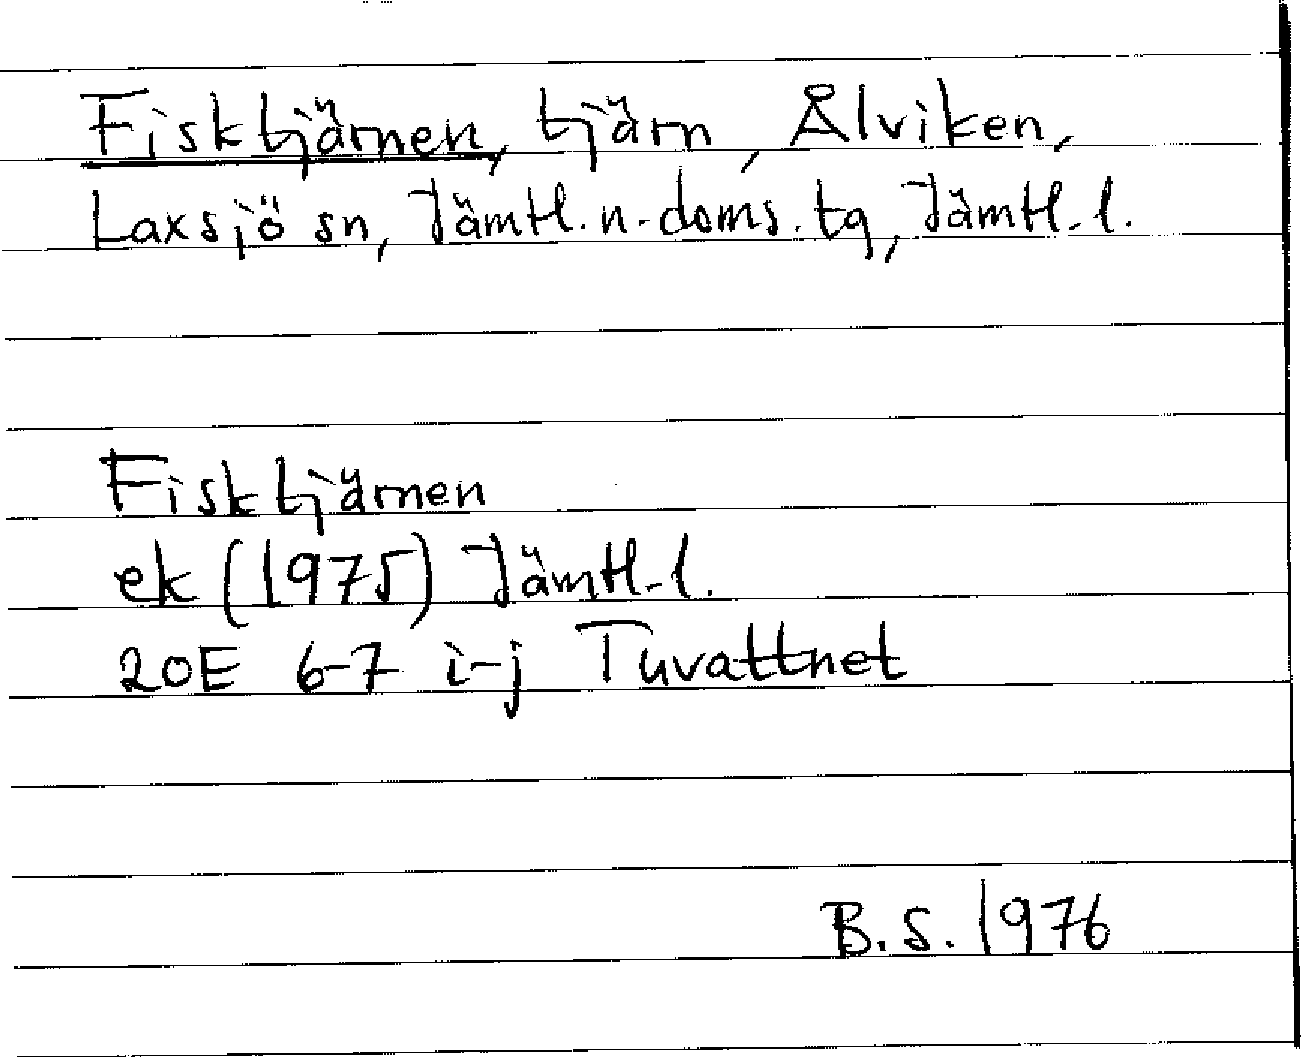 Fisktjärnen, tjärn, Ålviken,
Laxsjö sn, Jämtl. n. doms. tg, Jämtl. l.
Fisktjärnen
ek (1975) Jämtl. l.
20E 6-7 i-j Tuvattnet
B.S. 1976